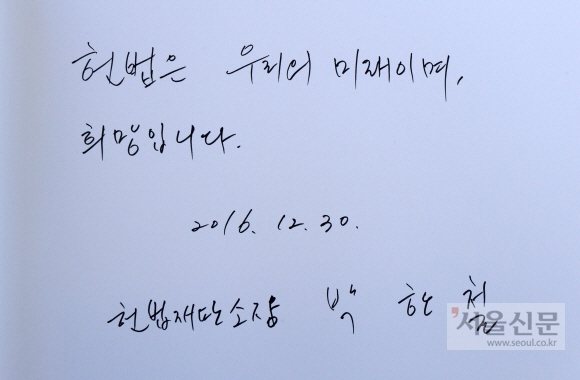 헌법은 우리의 미래이며,
희망입니다.
2016. 12. 30.
헌법재판소장 박 한 철
서울신문
www.seoul.co.kr